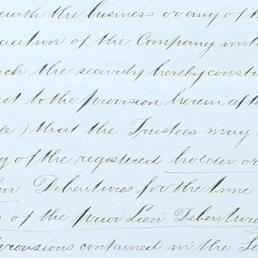 with the business or any of t
of the Company wit
the security hereby const
ct to the provision herein aft
) that the Trustees may
g of the registered holder or
Debentures for the time
of the prior Lien Debenture
rovisions contained in the